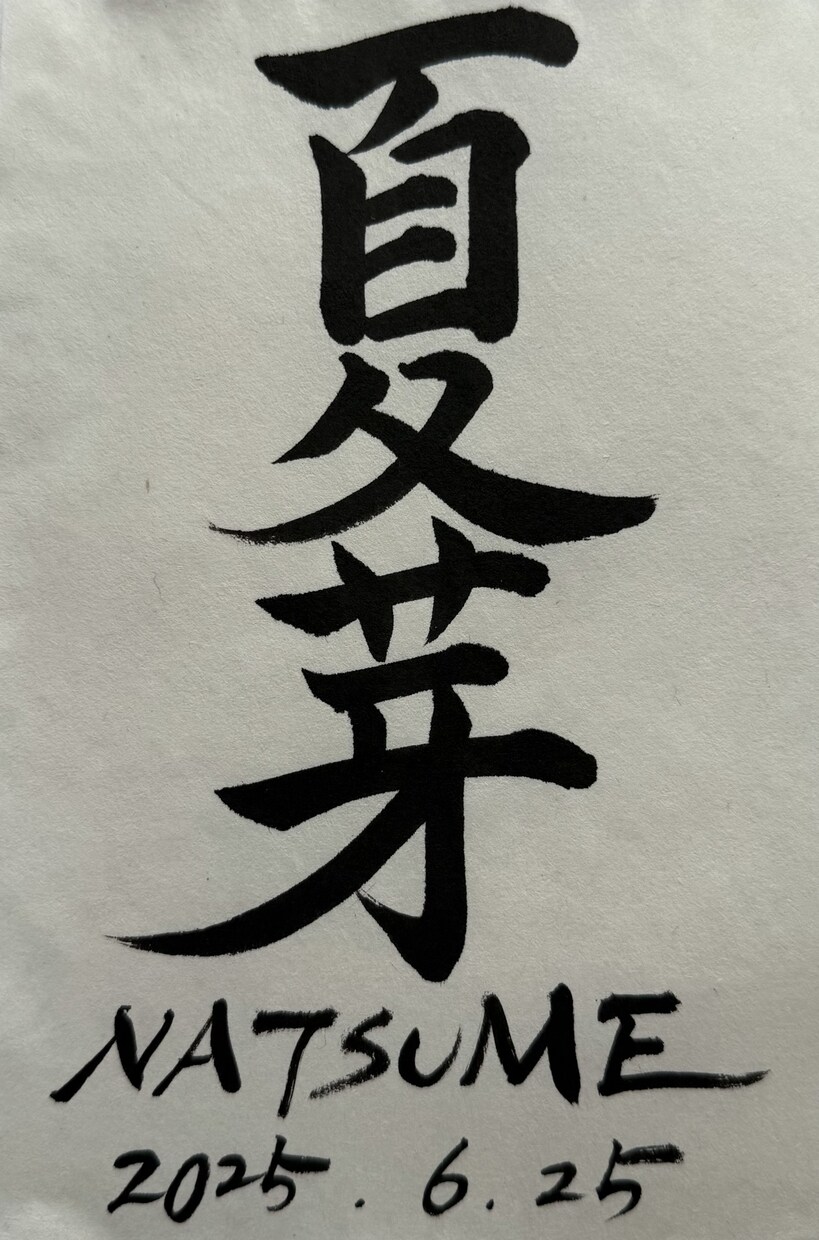 夏芽
NATSUME
2025.6.25